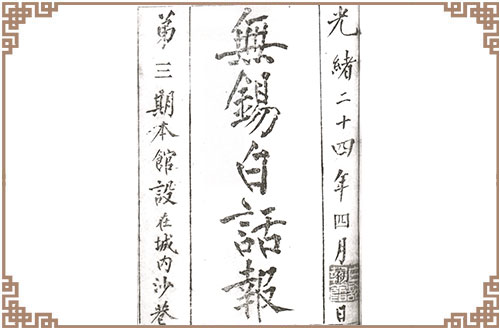 光緒二十四年四月初日
無錫白話報
第三期本館設在城內沙巷